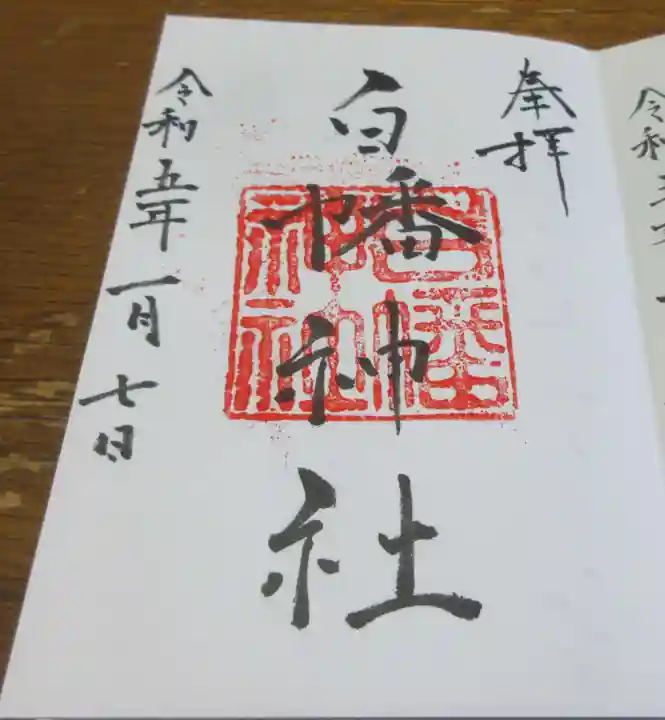 奉拝
白幡神社
令和五年一月七日